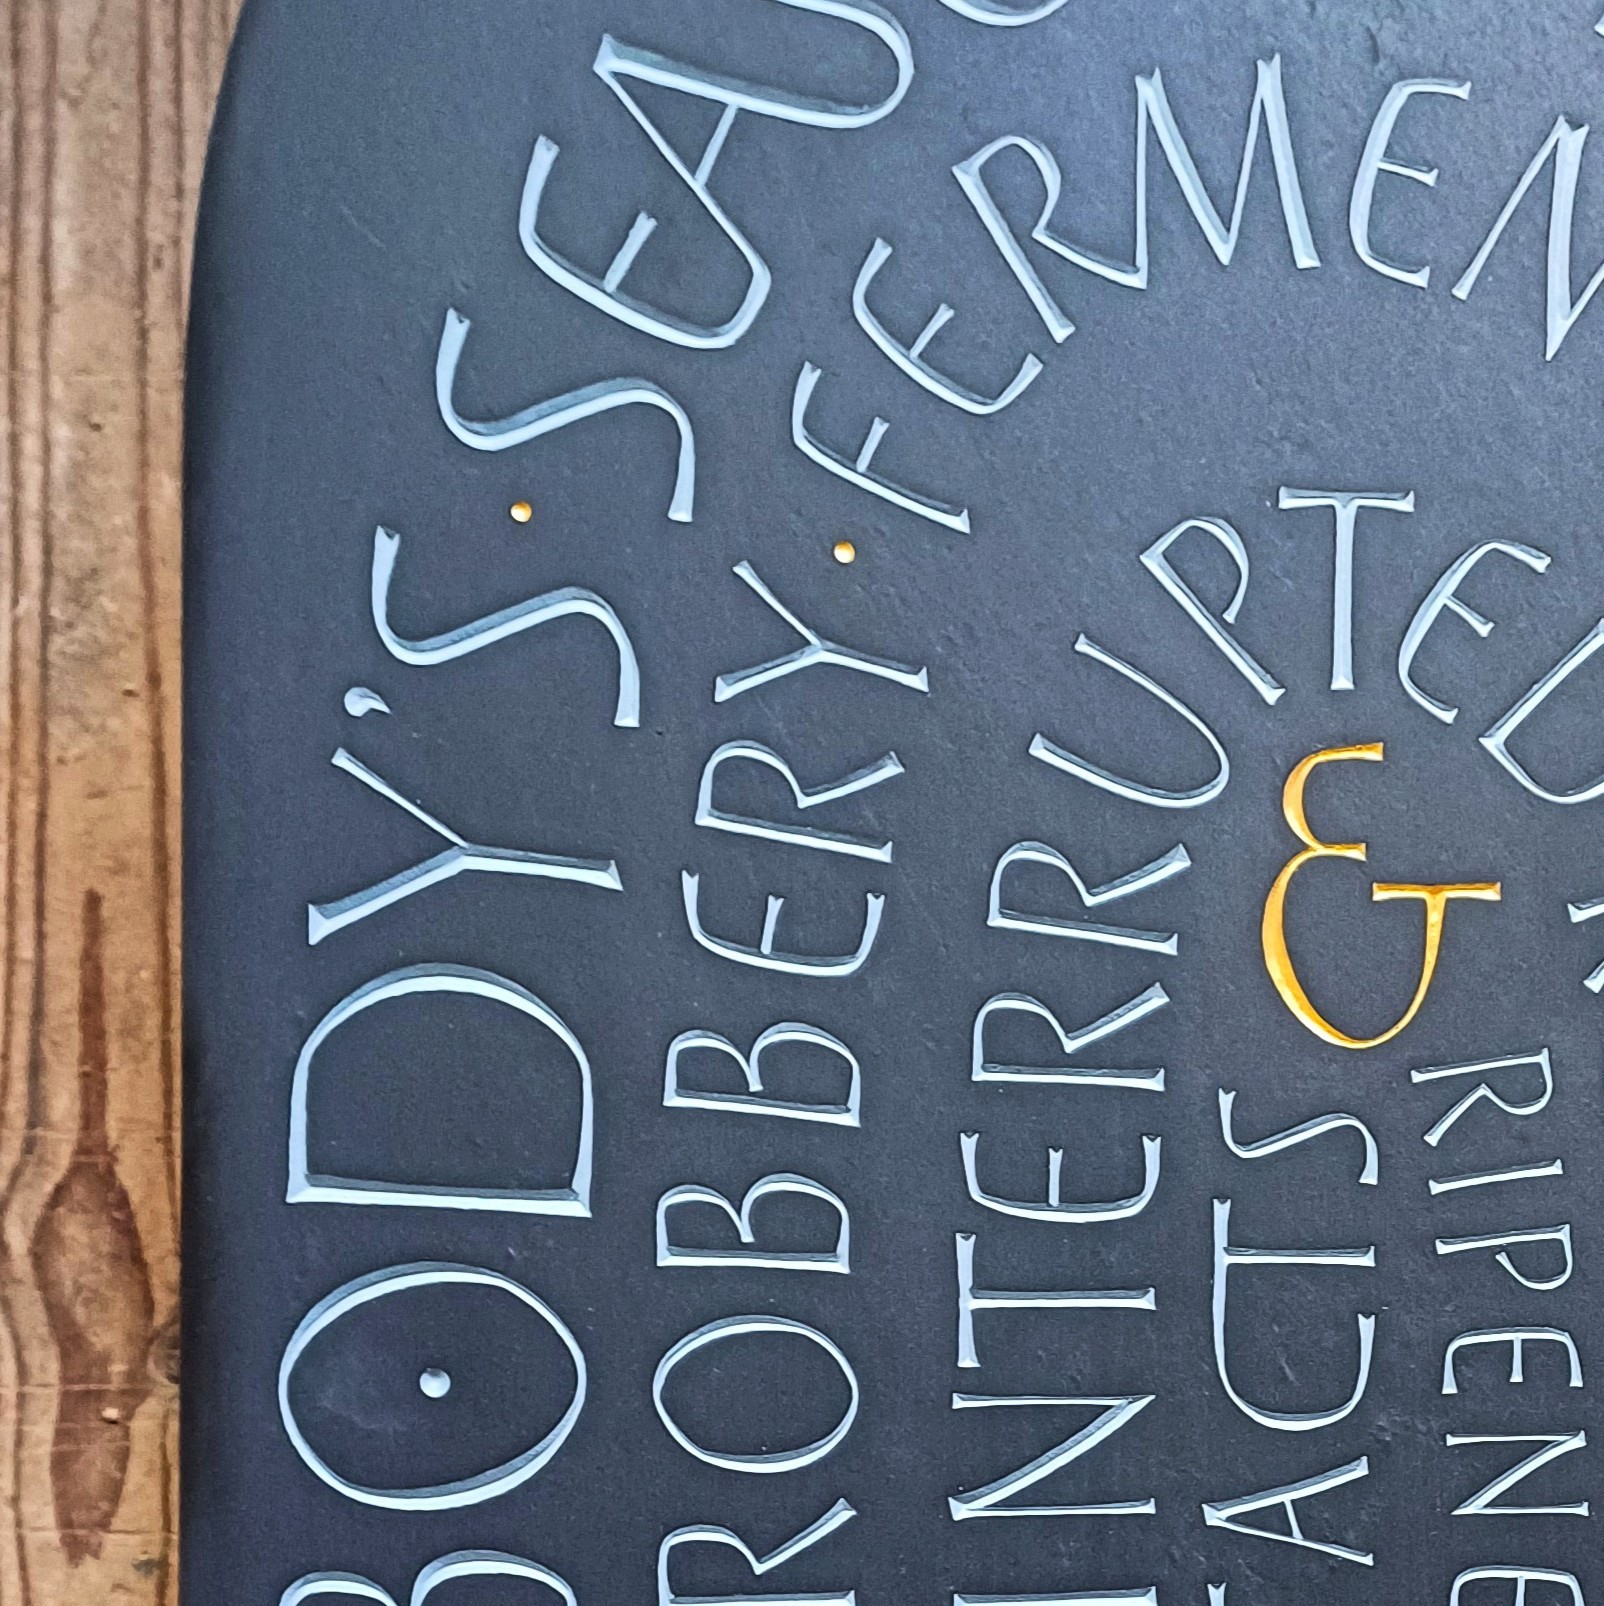 BODY'S · SEAU
ROBBERY · FERMEN
INTERRUPTED
ACTS & RIPEN